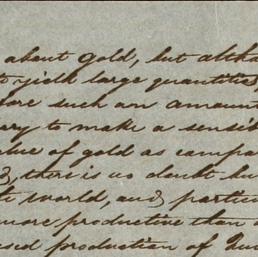 about gold, but altho
to yield large quantities
fore such an amount
ary to make a sensib
lue of gold as compa
d, there is no doubt bu
the world, and particu
more productive than
sed production of Qui